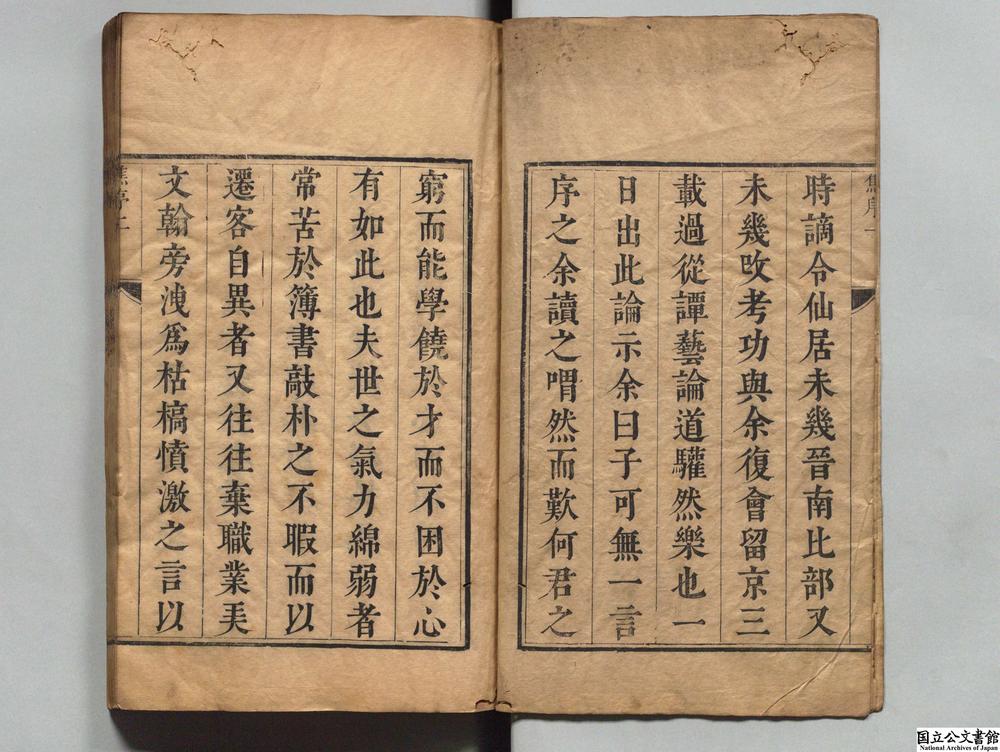 時謫令仙居未幾晉南比部又
未幾改考功與余復會留京三
載過從譚藝論道驩然樂也一
日出此論示余曰子可無一言
序之余讀之喟然而歎何君之
窮而能學饒於才而不困於心
有如此也夫世之氣力綿弱者
常苦於簿書敲朴之不暇而以
遷客自異者又往往棄職業美
文翰旁洩爲枯槁憤激之言以
焦序一
焦序二
国立公文書館
National Archives of Japan